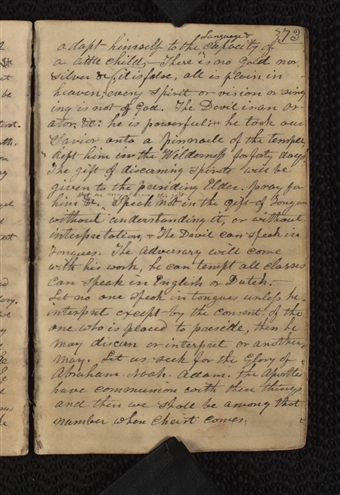 73
Language &
adapt himself to the capacity of
a little child,— There is no gold nor
silver & it is false, all is plain in
heaven; every spirit or vision or sing
ing is not of God. The Devil is an or
ator, &c: he is powerful he took our
Savior onto a pinnacle of the temple,
kept him in the Wilderness for forty days
The gift of discerning Spirits will be
given to the presiding Elder. pray for
him &c. Speak not in the gift of Tongues
without understanding it, or without
interpretation. The Devil can speak in
Tongues. The Adversary will come
with his work, he can tempt all classes
can speak in English or Dutch.—
Let no one speak in tongues unless he
interpret except by the consent of the
one who is placed to preside, then he
may discern or interpret or another
may. Let us seek for the Glory of
Abraham. Noah. Adam. the Apostles
have communion with these things
and then we shall be among that
number when Christ comes.